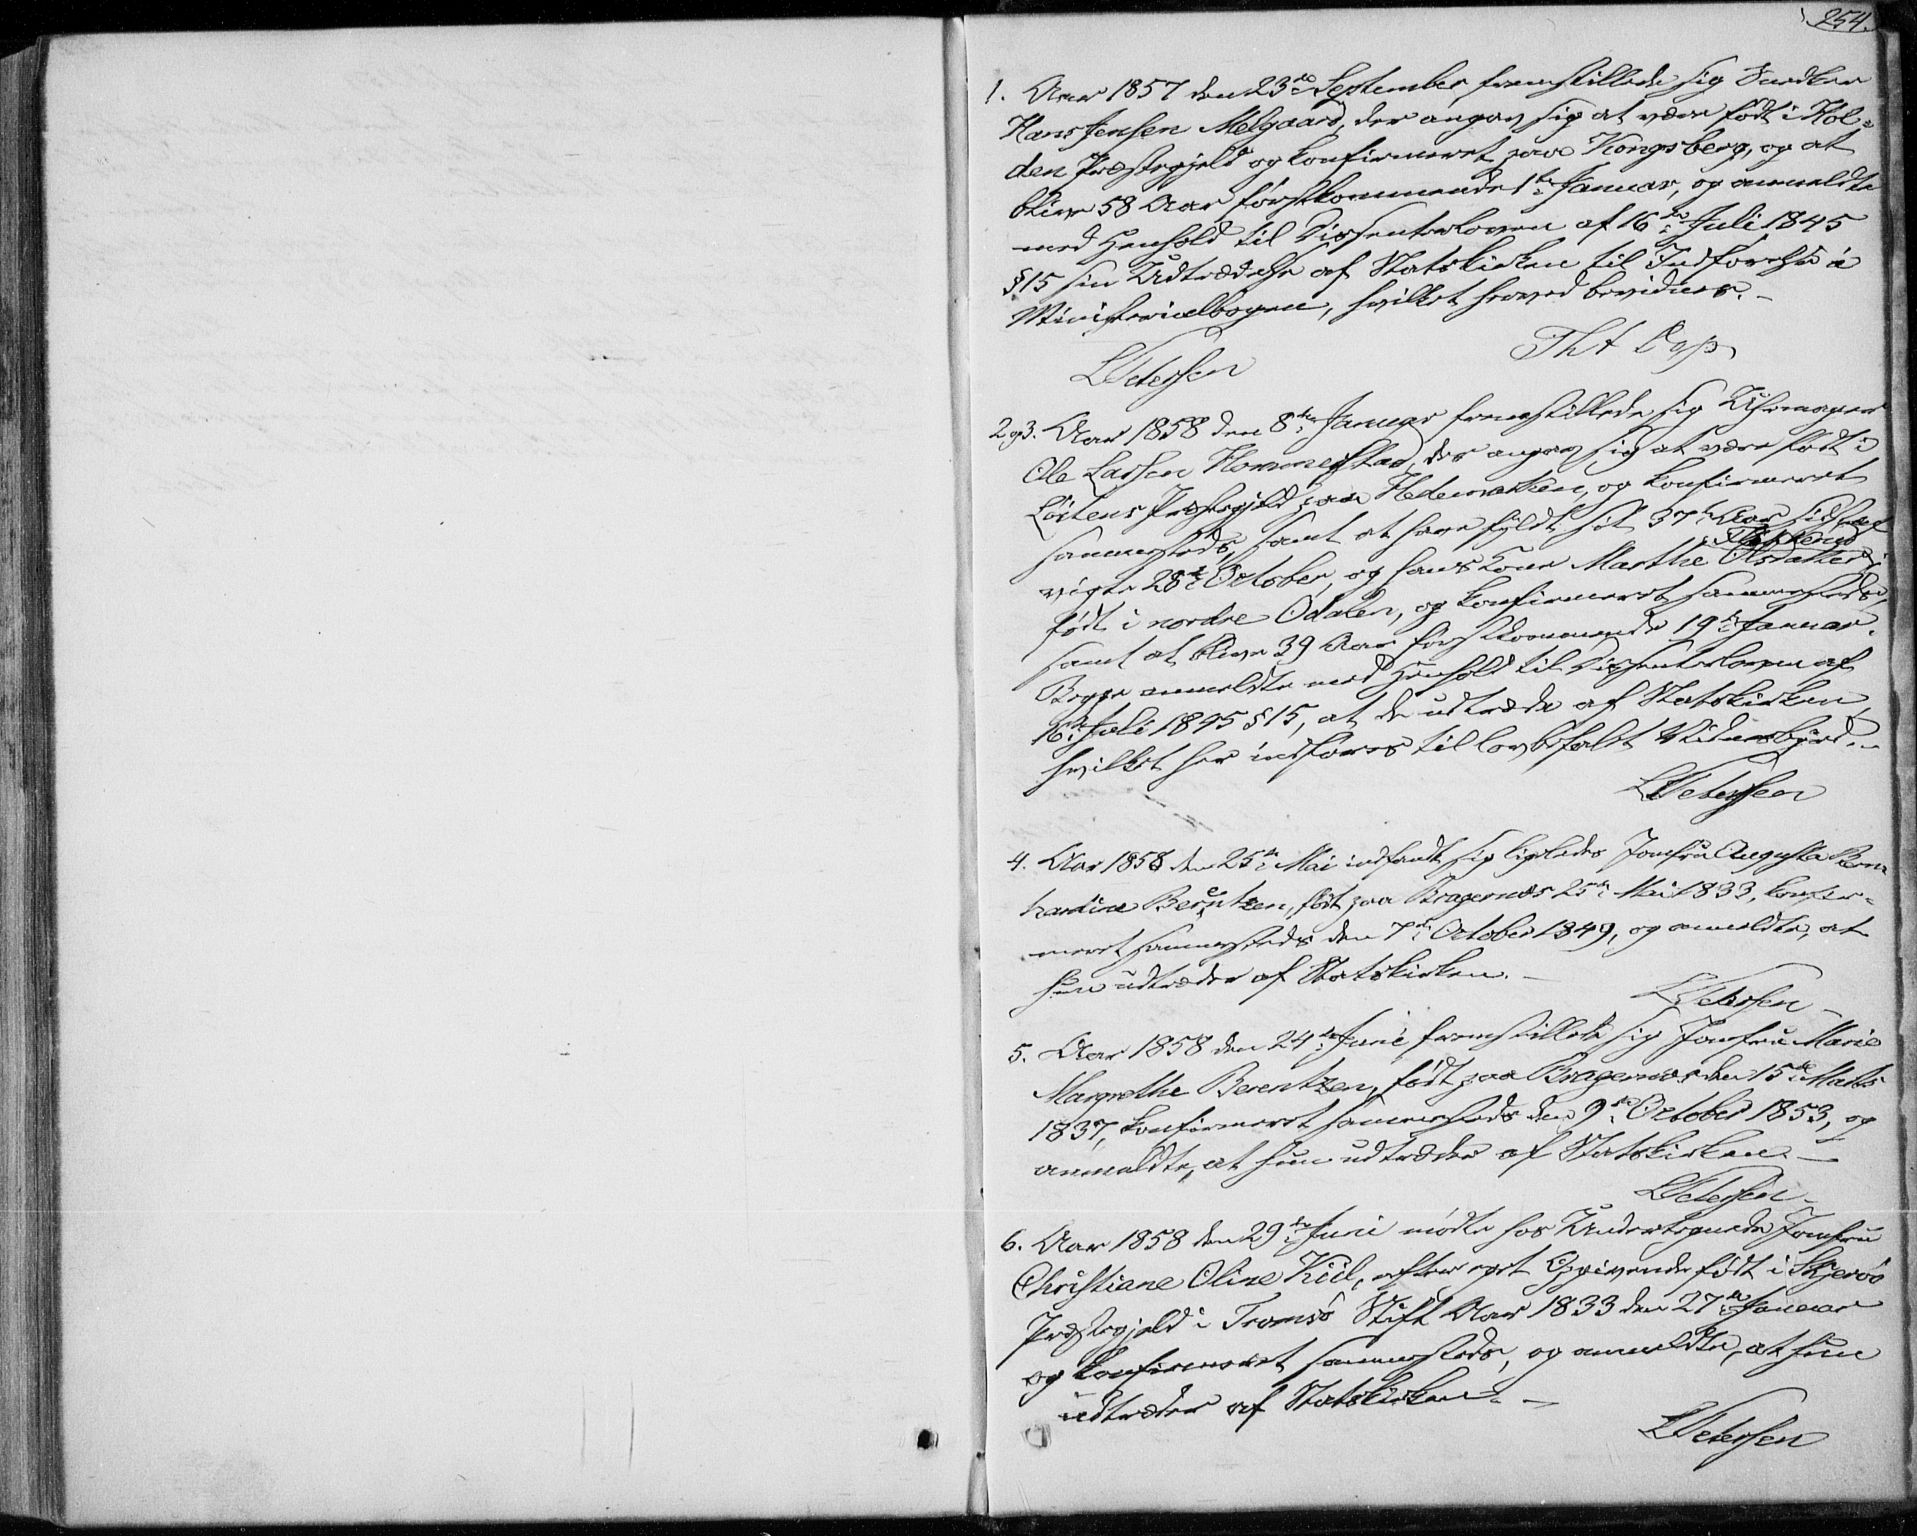 254.
1. Aar 1857 den 23de September fremstillede sig Snedker
Hans Jensen Melgaard, der angav sig at være født i Hol-
den Præstegjeld og konfirmeret paa Kongsberg, og at
blive 58 Aar førstkommende 1ste Januar, og anmeldte
med Henhold til Dissenterloven af 16de Juli 1845
§15 sin Udtrædelse af Statskirken til Indførelse i
Ministerialbogen, hvilket herved bevidnes.-
LPetersen
2 og 3. Aar 1858 den 8de Januar fremstillede sig Uhrmager
Ole Larsen Hommerstad, der angav sig at være født i
Löitens Præstegjeld paa Hedemarken, og konfirmeret
sammesteds, samt at have fyldt sit 37te Aar sidst-
vigte 28de October, og hans Kone Marthe Olsdatter
født i nordre Odalen, og konfirmeret sammesteds,
samt at blive 39 Aar førstkommende 19de Januar.
Begge anmeldte med Henhold til Dissenterloven af
16de Juli 1845 §15, at de udtræde af Statskirken,
hvilket her indføres til lovbefalet Vidnesbyrd.-
LPetersen
4. Aar 1858 den 25de Mai indfandt sig ligeledes Jomfru Augusta Bern-
hardine Berentzen, født paa Bragernæs 25de Mai 1833, konfir-
meret sammesteds den 7de October 1849, og anmeldte, at
hun udtræder af Statskirken.-
LPetersen
5. Aar 1858 den 24de Juni fremstillede sig Jomfru Marie
Margrethe Berentzen, født paa Bragernæs den 15de Marts
1837, konfirmeret sammesteds den 9de October 1853, og
anmeldte, at hun udtræder af Statskirken.-
LPetersen
6. Aar 1858 den 29de Juni mødte hos Undertegnede Jomfru
Christiane Oline Kiil, efter eget Opgivende født i Skjervö
Præstegjeld i Tromsö Stift Aar 1833 den 27de Januar
og konfirmeret sammesteds, og anmeldte, at hun
udtræder af Statskirken.-
LPetersen